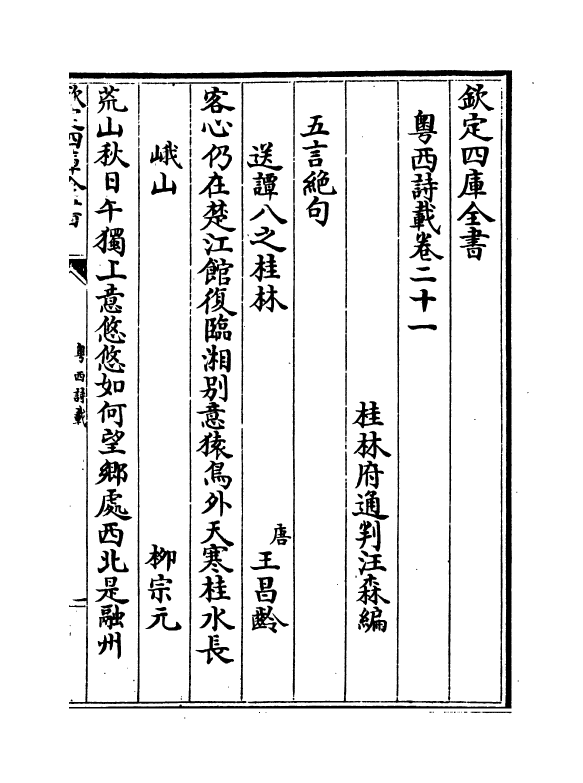 欽定四庫全書
粵西詩載卷二十一
桂林府通判汪森編
五言絕句
送譚八之桂林
唐
王昌齡
客心仍在楚江館復臨湘別意猿鳥外天寒桂水長
峨山
柳宗元
荒山秋日午獨上意悠悠如何望鄉處西北是融州
欽定四庫全書
粵西詩載
一